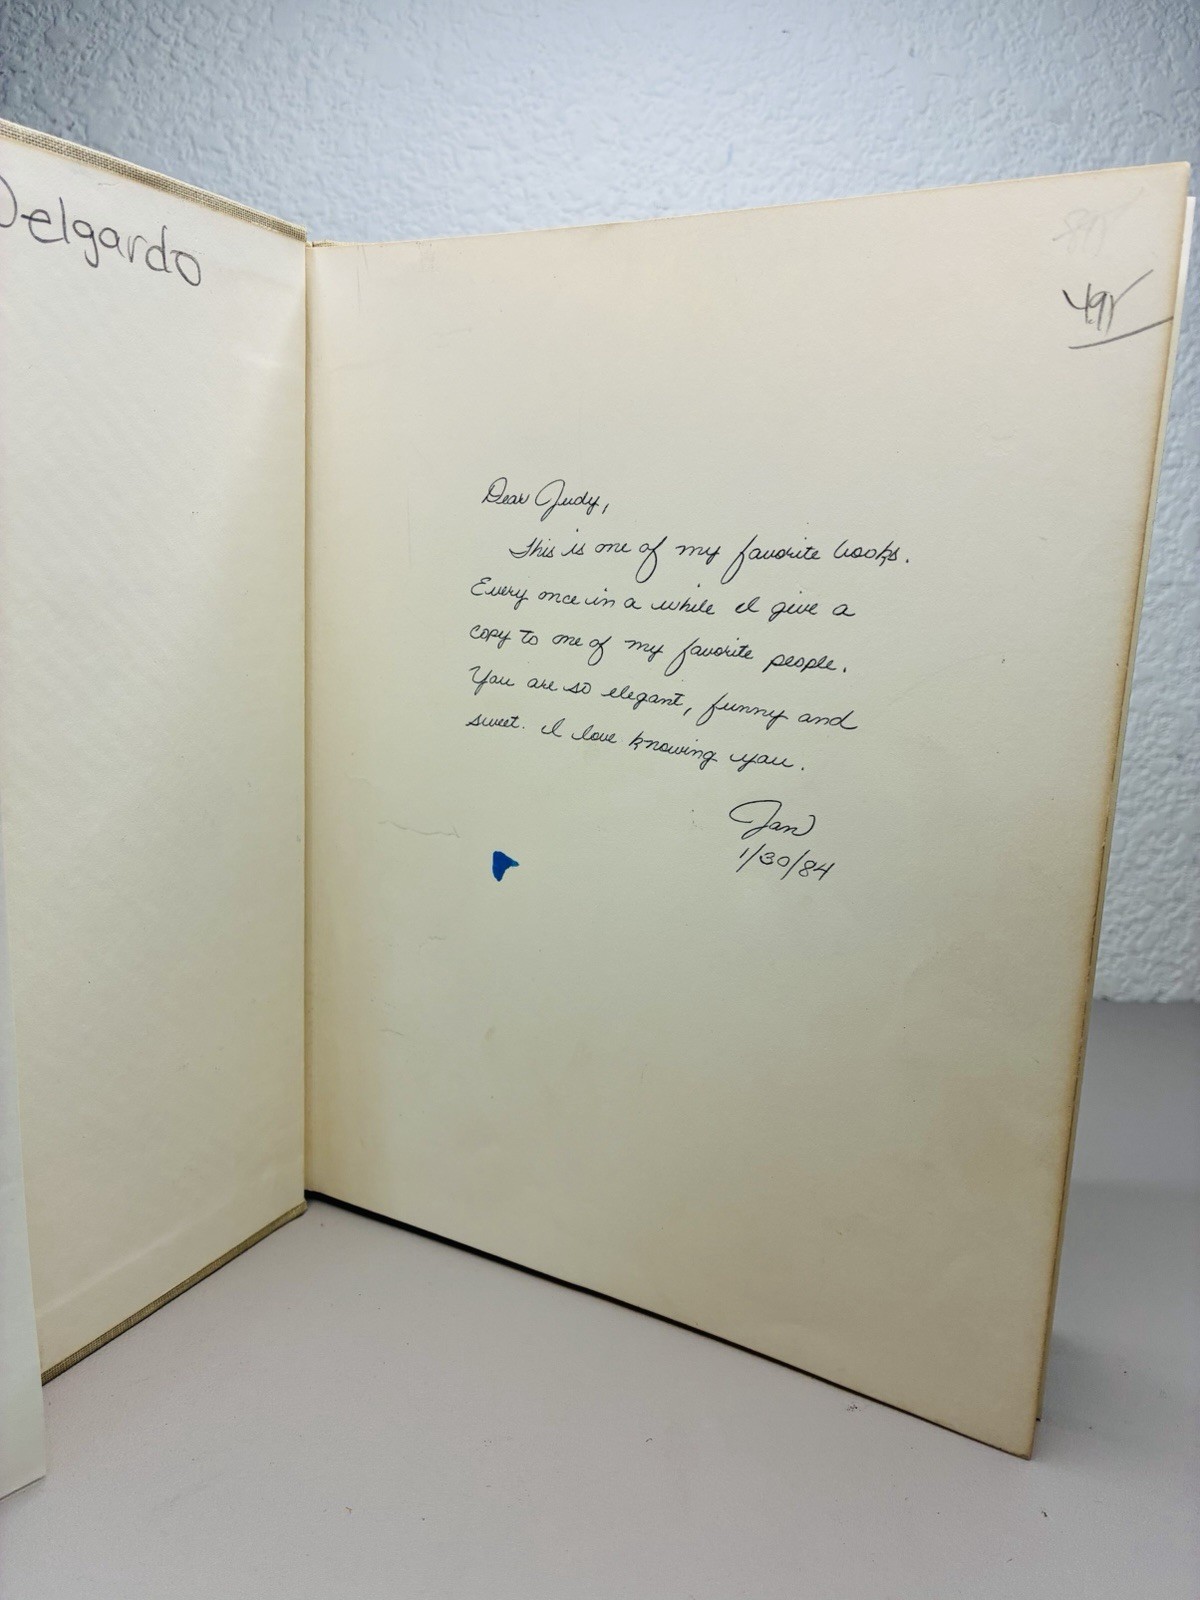 Delgardo
Dear Judy,
This is one of my favorite books.
Every once in a while I give a
copy to one of my favorite people.
You are so elegant, funny and
sweet. I love knowing you.
Jan
1/30/84